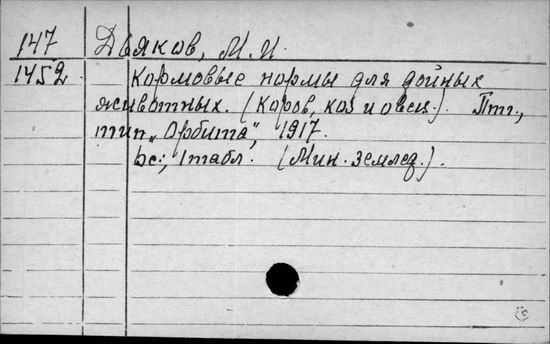 147 Дьяков, М. И.
1452 Кормовые нормы для дойных
животных. (Коров, коз и овец.). Птг.,
тип. „Орбита", 1917.
6с.; 1 табл. (Мин. землед.).